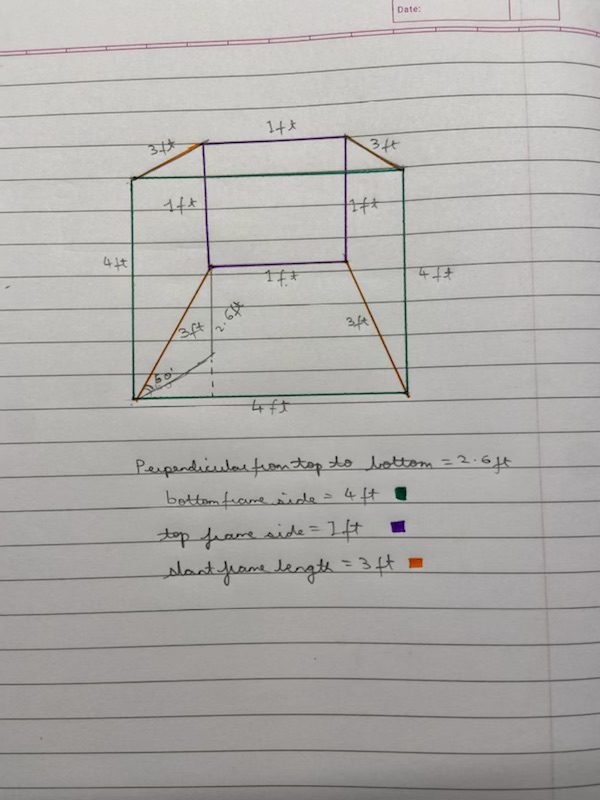 Date:
1ft
3ft
3ft
1ft
1ft
4ft
1ft
4ft
3ft
2.6ft
3ft
60°
4ft
Perpendicular from top to bottom = 2.6ft
bottom frame side = 4ft
top frame side = 1ft
slant frame length = 3ft